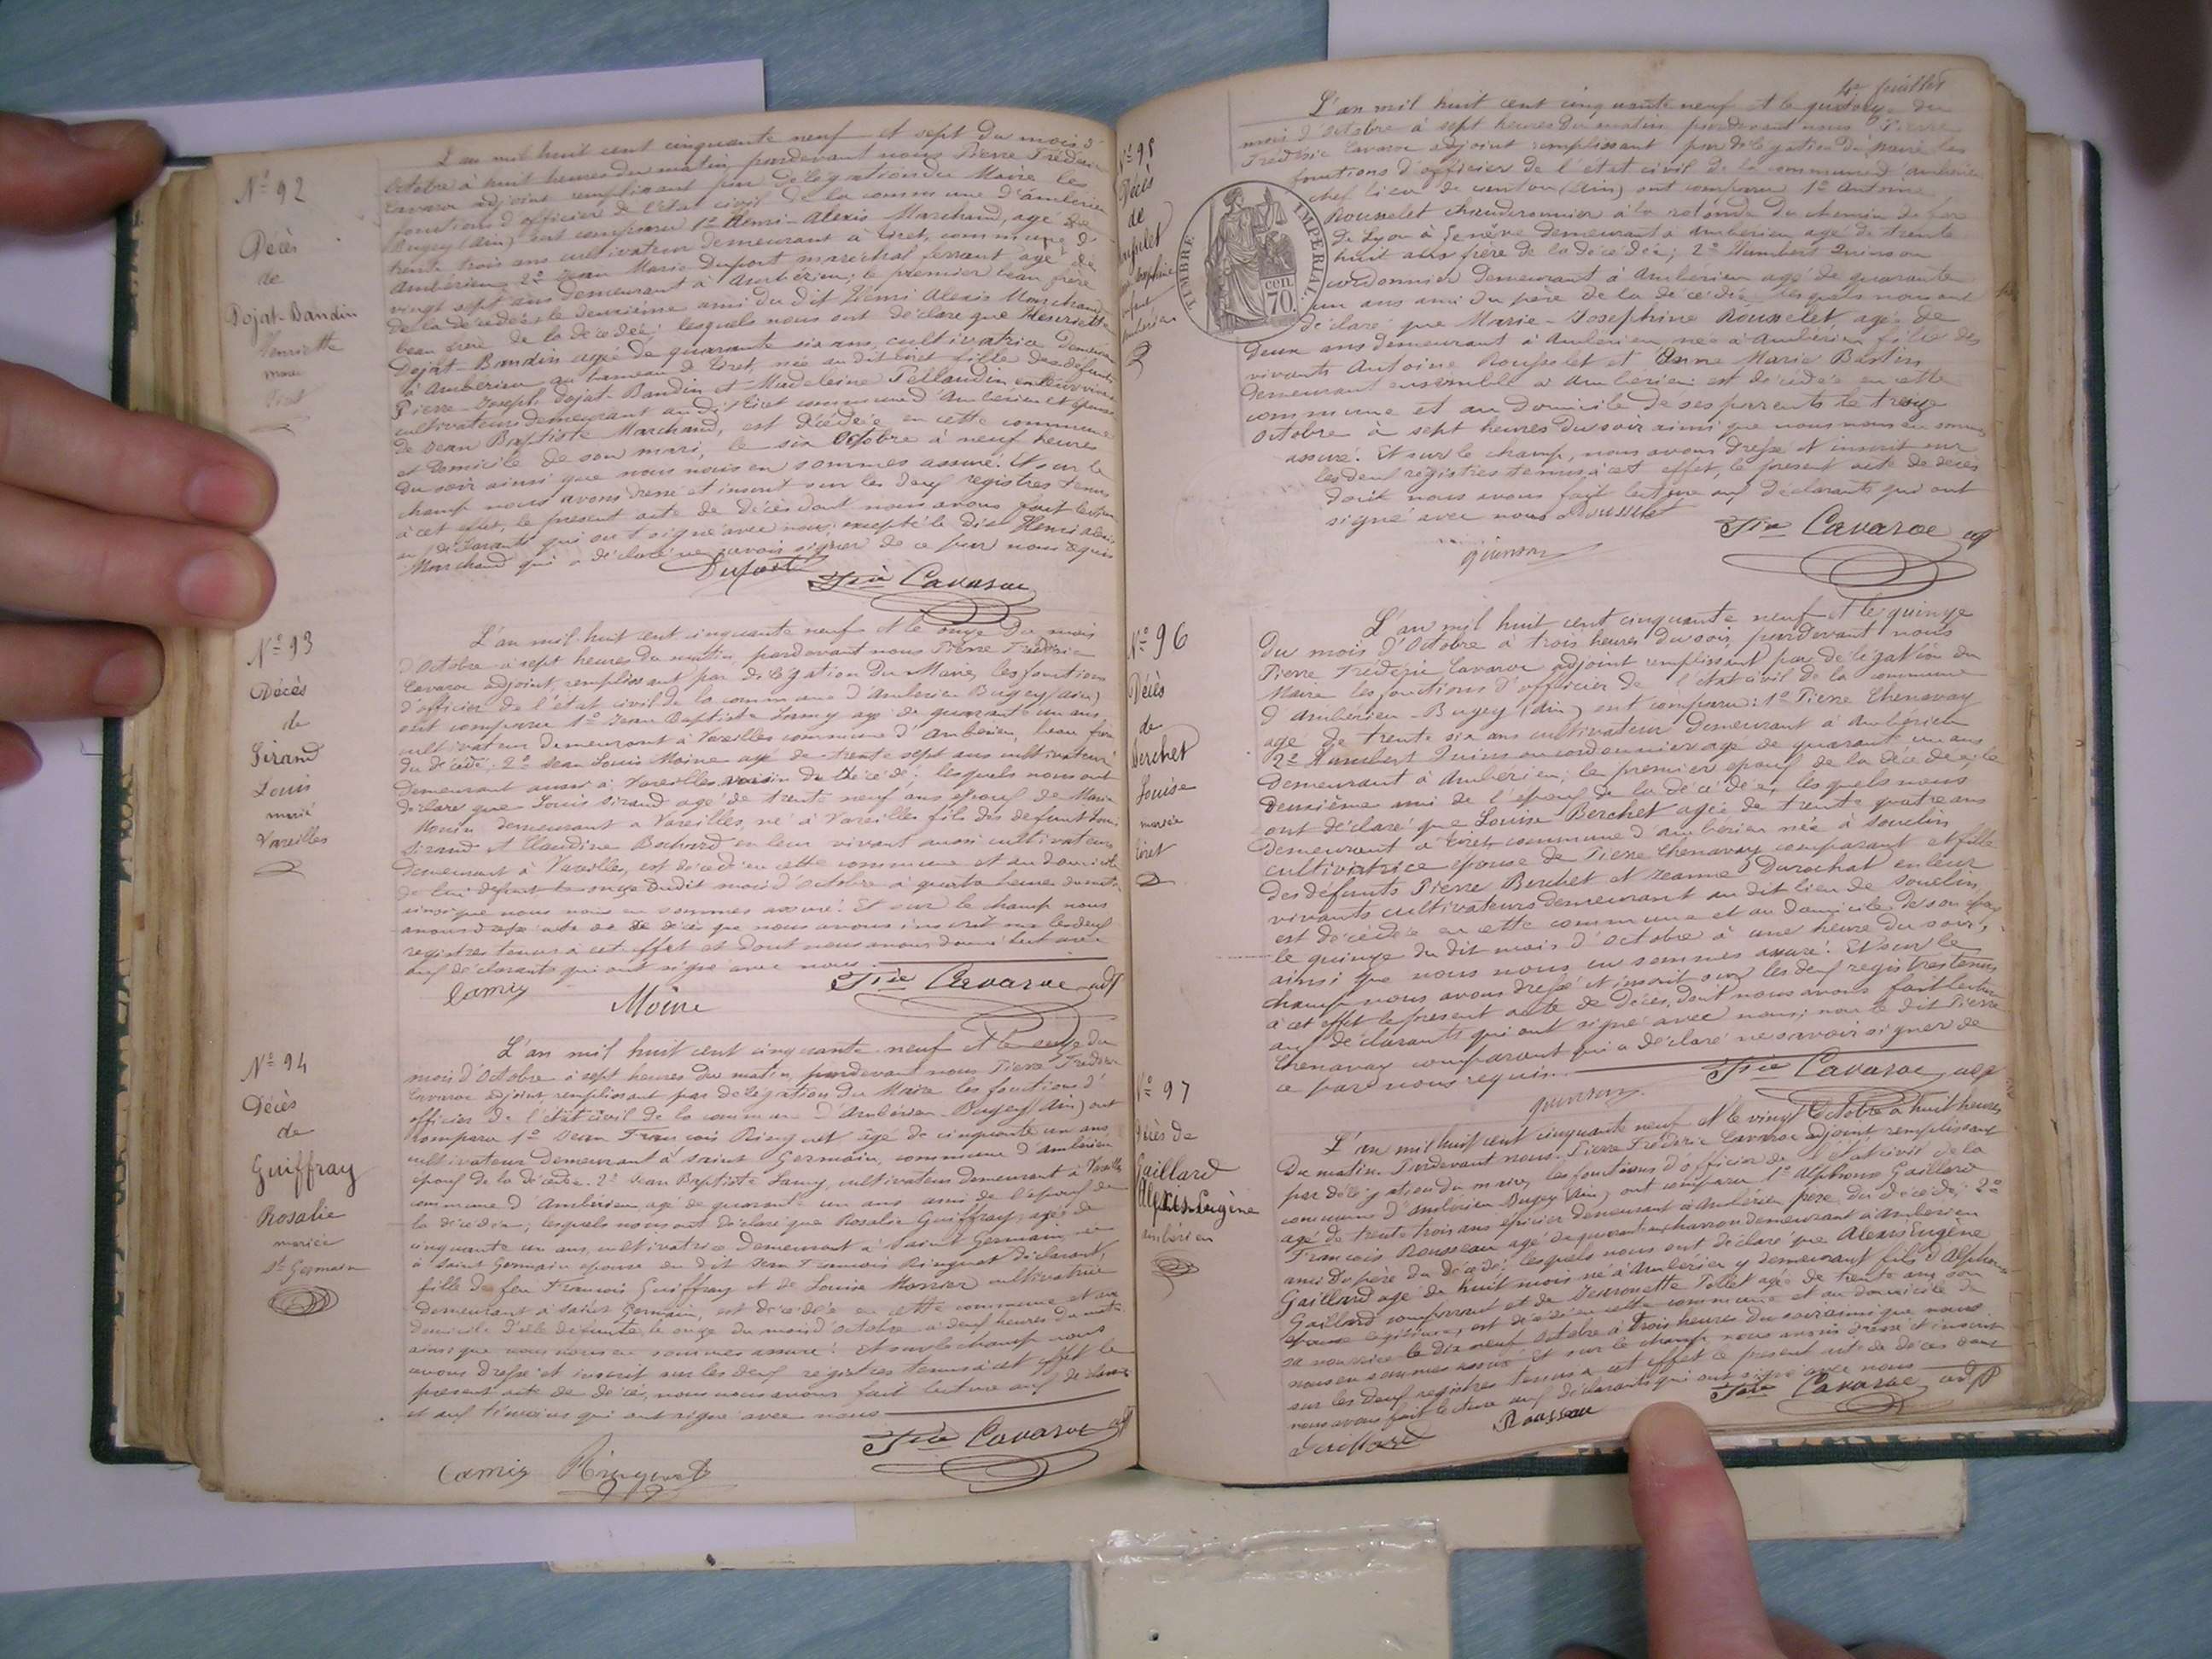 N° 92
Décès
de
Dojat-Bandin
Henriette
L'an mil huit cent cinquante neuf et sept du mois d'
octobre à huit heures du matin, pardevant nous Pierre Frédéric
Cavaroc adjoint remplissant par délégation du Maire les
fonctions d'officier de l'état civil de la commune d'ambérieu
Bugey (Ain) ont comparu 1° Henri-Alexis Marchand, agé de
trente trois ans cultivateur demeurant à Tiret, commune d'
ambérieu 2° Jean Marie Dupont marechal ferrant agé de
vingt sept ans demeurant à Ambérieu; le premier beau frère
de la décédée le deuxième ami du dit Henri Alexis Marchand
beau frère de la décédée; lesquels nous ont déclaré que Henriette
Dojat Bandin agée de quarante six ans, cultivatrice demeurant
à Ambérieu au hameau de Tiret, née au dit Tiret fille des défunts
Pierre-Joseph Dojat-Bandin et Madeleine Pellaudin en leur vivant
cultivateurs demeurant au dit Tiret commune d'Ambérieu et épouse
de Jean Baptiste Marchand, est décédée en cette commune
et domicile de son mari, le six Octobre à neuf heures
du soir ainsi que nous nous en sommes assuré. Et sur le
champ nous avons dressé et inscrit sur les deux registres tenus
à cet effet, le présent acte de décès dont nous avons fait lecture
aux déclarants qui ont signé avec nous; excepté le dit Henri Alexis
Marchand qui a déclaré ne savoir signer de ce par nous requis
Dupont Fric Cavaroc
N° 93
Décès
de
Sirand
Louis
marié
Vareilles
L'an mil huit cent cinquante neuf et le onze du mois
d'Octobre à sept heures du matin, pardevant nous Pierre Frédéric
Cavaroc adjoint, remplissant par délégation du Maire, les fonctions
d'officier de l'état civil de la commune d'Ambérieu Bugey (Ain)
ont comparu 1° Jean Baptiste Lamy agé de quarante un ans
cultivateur demeurant à Vareilles commune d'Ambérieu, beau frère
du décédé; 2° Jean Louis Moine agé de trente sept ans cultivateur
demeurant aussi à Vareilles voisin du décédé; lesquels nous ont
déclaré que Louis Sirand agé de trente neuf ans epoux de Marie
demeurant à Vareilles, né à Vareilles fils des défunts Louis
Sirand et Claudine Bochard en leur vivant aussi cultivateurs
demeurant à Vareilles, est décédé en cette commune et au domicile
de lui défunt le onze dudit mois d'octobre à quatre heures du matin
ainsi que nous nous en sommes assuré. Et sur le champ nous
avons dressé acte de décès que nous avons inscrit sur les deux
registres tenus à cet effet et dont nous avons donné lecture
aux déclarants qui ont signé avec nous.
Lamy Moine Fric Cavaroc adjt
N° 94
Décès
de
Guiffray
Rosalie
mariée
St Germain
L'an mil huit cent cinquante neuf et le onze du
mois d'Octobre à sept heures du matin, pardevant nous Pierre Frédéric
Cavaroc adjoint, remplissant par délégation du Maire les fonctions d'
officier de l'état civil de la commune d'Ambérieu-Bugey (Ain) ont
comparu 1° Jean François Ringuet âgé de cinquante un ans
cultivateur demeurant à saint Germain, commune d'Ambérieu
epoux de la décédée. 2° Jean Baptiste Lamy, cultivateur demeurant à Vareilles
commune d'Ambérieu agé de quarante un ans ami de l'epoux de
la décédée; lesquels nous ont déclaré que Rosalie Guiffray, agée de
cinquante un ans, cultivatrice demeurant à Saint Germain, née
à Saint Germain epouse du dit Jean François Ringuet déclarant,
fille de feu François Guiffray et de Louise Monier cultivatrice
demeurant à Saint Germain, est décédée en cette commune et au
domicile d'elle défunte le onze du mois d'octobre à deux heures du matin
ainsi que nous nous en sommes assuré. et sur le champ nous
avons dressé et inscrit sur les deux registres tenus à cet effet le
présent acte de décès, nous nous avons fait lecture aux déclarants
et aux témoins qui ont signé avec nous
Fric Cavaroc adjt
Lamy Ringuet
4e feuillet
N° 95
Décès
de
TIMBRE IMPERIAL
CEN. 70.
L'an mil huit cent cinquante neuf et le quatorze du
mois d'Octobre à sept heures du matin pardevant nous Pierre
Frédéric Cavaroc adjoint remplissant par délégation du maire les
fonctions d'officier de l'état civil de la commune d'ambérieu
chef lieu de canton (Ain) ont comparu 1° Antoine
Rousselet chaudronnier à la rotonde du chemin de fer
de Lyon à Genève demeurant à ambérieu agé de trente
huit ans père de la décédée; 2° Humbert Quinson
cordonnier demeurant à Ambérieu agé de quarante
un ans ami du père de la décédée lesquels nous ont
déclaré que Marie-Josephine Rousselet agée de
deux ans demeurant à Ambérieu née à Ambérieu fille des
vivants Antoine Rousselet et Anne Marie Bastin
demeurant ensemble à Ambérieu est décédée en cette
commune et au domicile de ses parents le treize
Octobre à sept heures du soir ainsi que nous nous en sommes
assuré. Et sur le champ, nous avons dressé et inscrit sur
les deux registres tenus à cet effet, le présent acte de décès
dont nous avons fait lecture aux déclarants qui ont
signé avec nous Rousselet
quinson Fric Cavaroc adjt
N° 96
Décès
de
Berchet
Louise
mariée
tiret
L'an mil huit cent cinquante neuf et le quinze
du mois d'Octobre à trois heures du soir, pardevant nous
Pierre Frédéric Cavaroc adjoint remplissant par délégation du
Maire les fonctions d'officier de l'état civil de la commune
d'Ambérieu-Bugey (Ain) ont comparu: 1° Pierre Chenavay
agé de trente six ans cultivateur demeurant à Ambérieu
2° Humbert Quinson cordonnier agé de quarante un ans
demeurant à Ambérieu; le premier epoux de la décédée, le
deuxième ami de l'époux de la décédée, lesquels nous
ont déclaré que Louise Berchet agée de trente quatre ans
demeurant à Tiret commune d'ambérieu née à Souclin
cultivatrice épouse de Pierre Chenavay comparant et fille
des défunts Pierre Berchet et Jeanne Durochat en leur
vivants cultivateurs demeurant au dit lieu de Souclin,
est décédée en cette commune et au domicile de son époux
le quinze du dit mois d'Octobre à une heure du soir,
ainsi que nous nous en sommes assuré. Et sur le
champ nous avons dressé et inscrit sur les deux registres tenus
à cet effet le présent acte de décès, dont nous avons fait lecture
aux déclarants qui ont signé avec nous; non le dit Pierre
Chenavay comparant qui a déclaré ne savoir signer de
ce par nous requis.
quinson Fric Cavaroc adjt
N° 97
Décès de
Gaillard
Alexis Eugène
ambérieu
L'an mil huit cent cinquante neuf et le vingt Octobre à huit heures
du matin. Pardevant nous Pierre Frédéric Cavaroc adjoint remplissant
par délégation du maire, les fonctions d'officier de l'état civil de la
commune d'Ambérieu Bugey (Ain) ont comparu 1° Alphonse Gaillard
agé de trente trois ans épicier demeurant à Ambérieu père du décédé; 2°
François Rousseau agé de quarante charron demeurant à Ambérieu
ami du père du décédé; lesquels nous ont déclaré que Alexis Eugène
Gaillard agé de huit mois né à Ambérieu y demeurant fils d'Alphonse
Gaillard comparant et de Jeannette Tollet agée de trente ans son
épouse légitime, est décédé en cette commune et au domicile de
sa nourrice le dix neuf Octobre à trois heures du soir ainsi que nous
nous en sommes assuré. Et sur le champ nous avons dressé et inscrit
sur les deux registres tenus à cet effet le présent acte de décès dont
nous avons fait lecture aux déclarants qui ont signé avec nous
Gaillard Rousseau Fric Cavaroc adjt